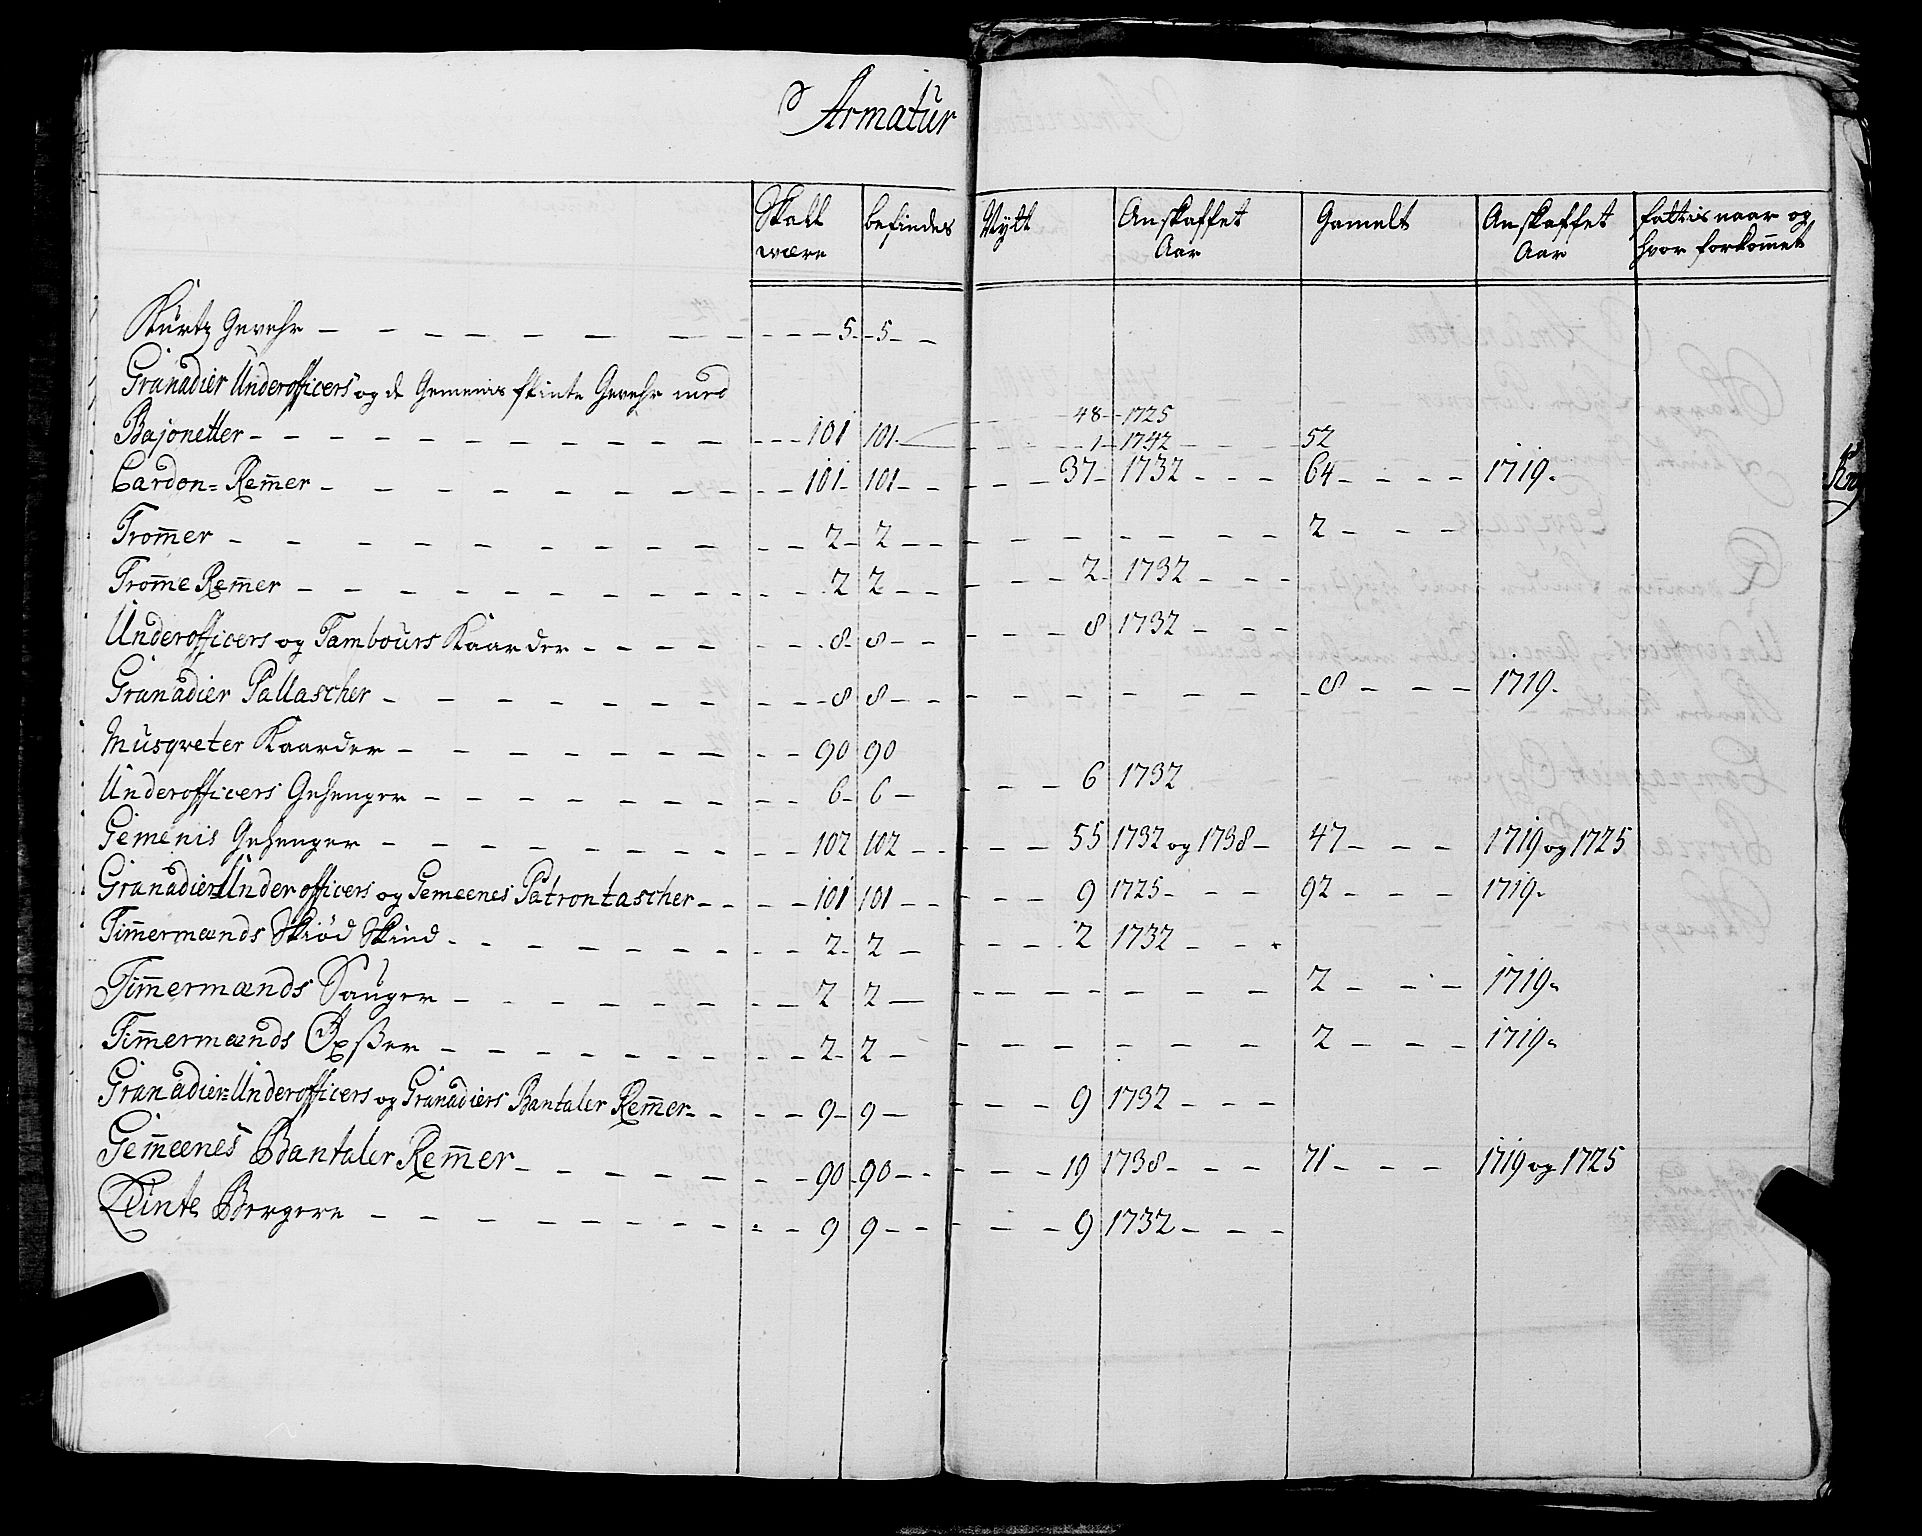 Armatur
Skall være befindes Nytt Anskaffet Aar Gamelt Anskaffet Aar fattis naar og hvor forkom̄et
Kurtz Gevehr 5 5
Granadier Underofficers og de Gemenis flinte Gevehr med 48 1725
Bajonetter 101 101 1 1742 52
Cardon= Rem̄er 101 101 37 1732 64 1719
Trom̄er 2 2 2
Trom̄e Rem̄er 2 2 2 1732
Underofficers og Tambours Kaarder 8 8 8 1732
Granadier Pallascher 8 8 8 1719
Musqveter Kaarder 90 90
Underofficers Gehenger 6 6 6 1732
Gemenis Gehenger 102 102 55 1732 og 1738 47 1719 og 1725
Granadier=Underofficers og Gemeenes Patrontascher 101 101 9 1725 92 1719
Tim̄ermænds Skiød Skind 2 2 2 1732
Tim̄ermænds Sauger 2 2 2 1719
Tim̄ermænds Øxßer 2 2 2 1719
Granadier=Underofficers og Granadiers Bantaler Rem̄er 9 9 9 1732
Gem̄eenes Bantaler Rem̄er 90 90 19 1738 71 1719 og 1725
Lünte Bergere 9 9 9 1732